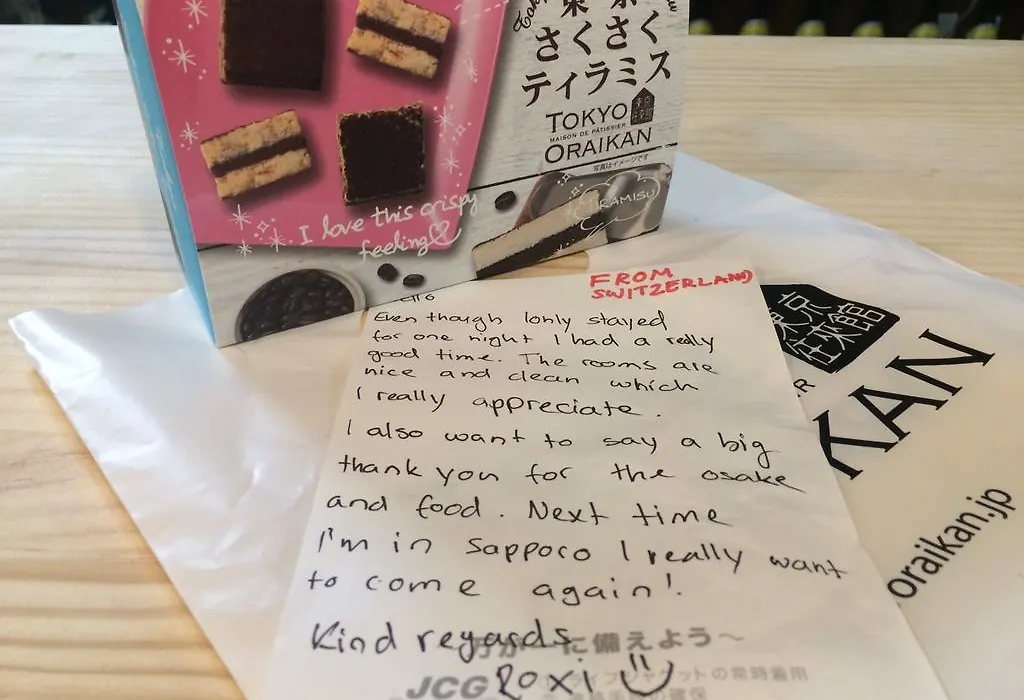 さくさく
ティラミス
TOKYO
MAISON DE PÂTISSIER
ORAIKAN
写真はイメージです
TIRAMISU
I love this crispy
feeling
FROM
SWITZERLAND
Even though I only stayed
for one night I had a really
good time. The rooms are
nice and clean which
I really appreciate.
I also want to say a big
thank you for the osake
and food. Next time
I'm in Sapporo I really want
to come again!
Kind regards
Roxi
に備えよう～
JCG
ライフジャケットの常時着用
東京
往来館
KAN
oraikan.jp